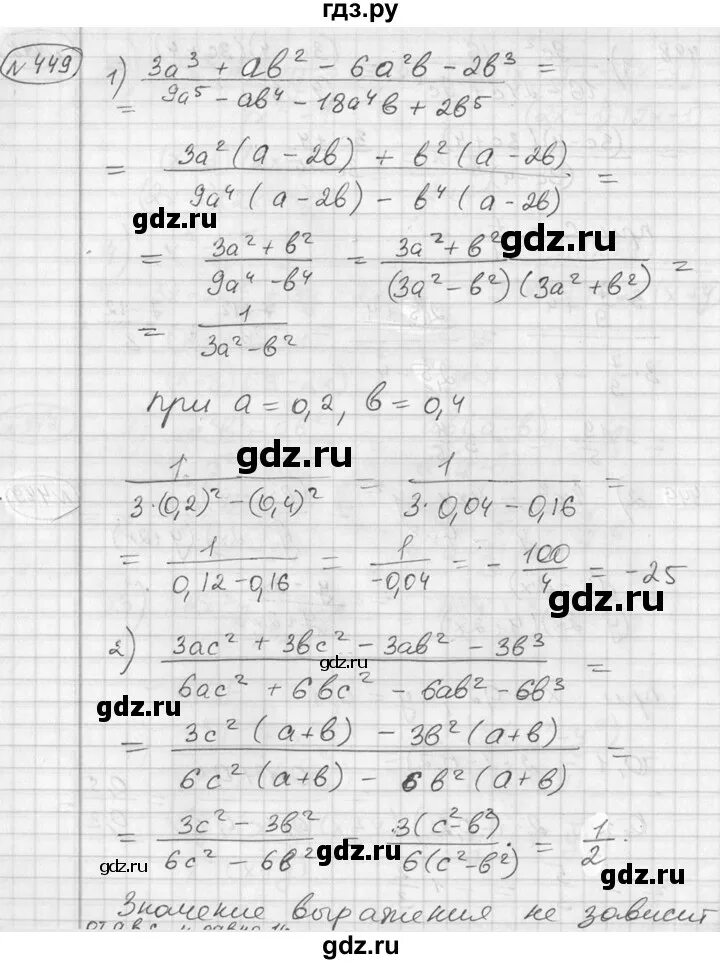 гдз.ру
№449
1) (3a³ + ab² - 6a²b - 2b³)/(9a⁵ - ab⁴ - 18a⁴b + 2b⁵) =
= (3a²(a - 2b) + b²(a - 2b))/(9a⁴(a - 2b) - b⁴(a - 2b)) =
gdz.ru
= (3a² + b²)/(9a⁴ - b⁴) = (3a² + b²)/((3a² - b²)(3a² + b²)) =
gdz.ru
= 1/(3a² - b²)
при a = 0,2, b = 0,4
gdz.ru
1/(3·(0,2)² - (0,4)²) = 1/(3·0,04 - 0,16) =
= 1/(0,12 - 0,16) = 1/(-0,04) = - 100/4 = -25
gdz.ru
2) (3ac² + 3bc² - 3ab² - 3b³)/(6ac² + 6bc² - 6ab² - 6b³) =
gdz.ru
gdz.ru
= (3c²(a+b) - 3b²(a+b))/(6c²(a+b) - 6b²(a+b)) =
gdz.ru
= (3c² - 3b²)/(6c² - 6b²) = 3(c² - b²)/6(c² - b²) = 1/2.
gdz.ru
gdz.ru
Значение выражения не зависит
gdz.ru